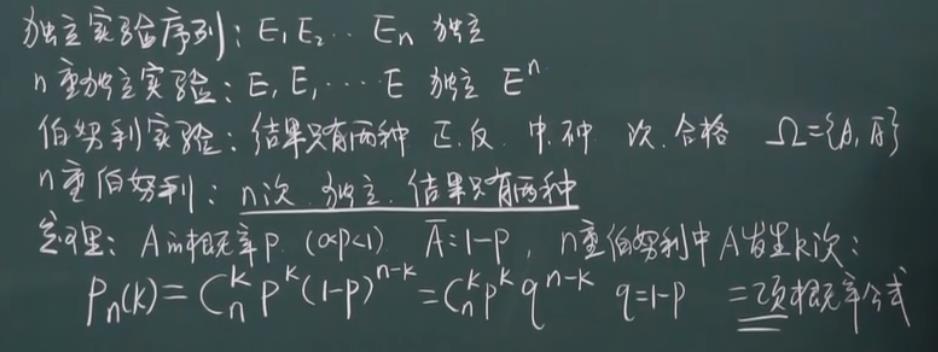 独立实验序列：E₁ E₂ ‥ Eₙ 独立
n重独立实验：E, E, ···· E 独立 Eⁿ
伯努利实验：结果只有两种 正.反 中.不中 次.合格 Ω={A, A̅}
n重伯努利：n次.独立.结果只有两种
定理：A的概率P. (0<P<1) A̅:1-P , n重伯努利中A发生k次：
Pₙ(k)=Cₙᵏ Pᵏ(1-P)ⁿ⁻ᵏ=Cₙᵏ Pᵏ qⁿ⁻ᵏ q=1-P 二项概率公式